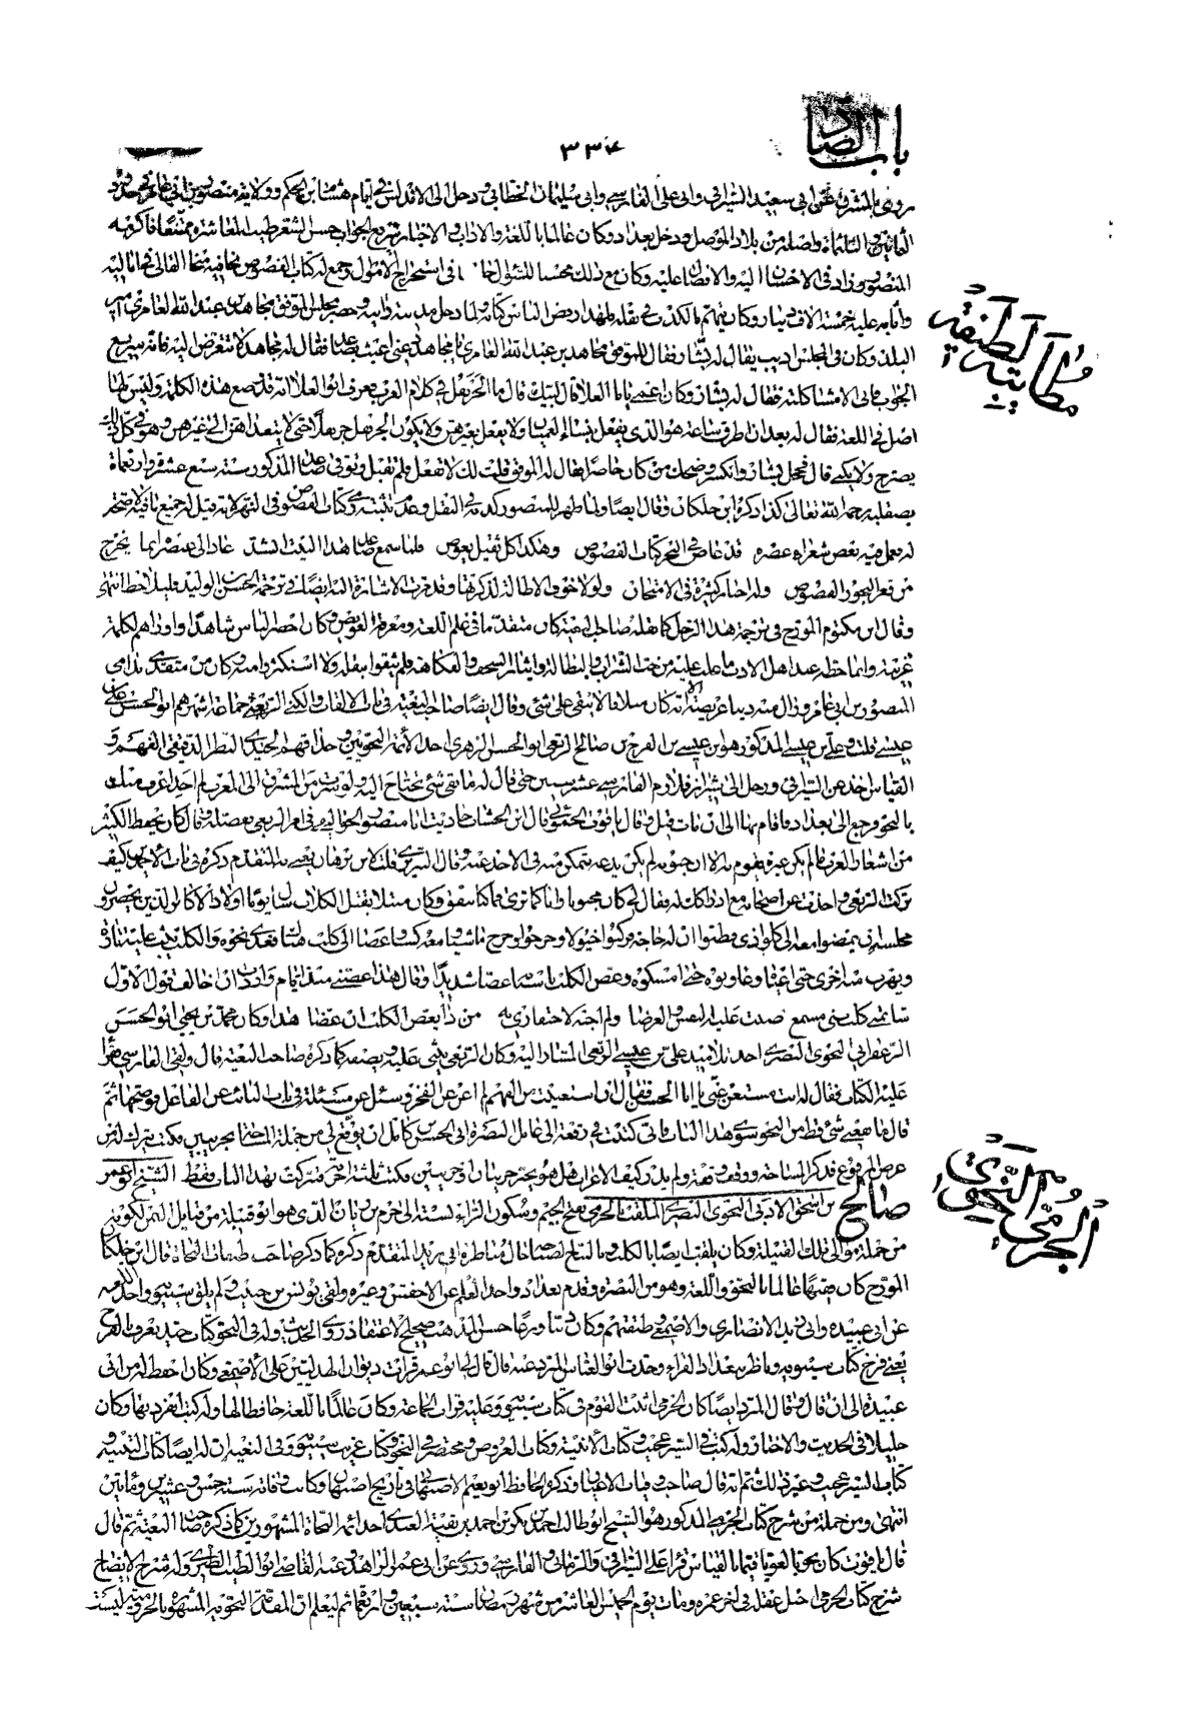 باب الصاد
٣٣٤
روى بالمشرق عن ابي سعيد السيرافي وابي علي الفارسي وابي سليمان الخطابي ودخل الى الاندلس في ايام هشام بن الحكم وولاية منصور بن ابي عامر في حدود
الثمانين والثلثمائة واصله من بلاد الموصل ودخل بغداد وكان عالما باللغة والاداب والاخبار سريع الجواب حسن الشعر طيب المعاشرة ممتعا فاكرمه
المنصور وزاد في الاحسان اليه والافضال عليه وكان مع ذلك محسنا للسؤال حاذقا في استخراج الاموال وجمع له كتاب الفصوص نحا فيه منحا القالي في اماليه
واثابه عليه خمسة الاف دينار وكان يتهم بالكذب في نقله فلهذا رفض الناس كتابه ولما دخل مدينة دانية وحضر مجلس الموفق مجاهد بن عبد الله العامري امير
البلد وكان في المجلس اديب يقال له بشار فقال للموفق مجاهد بن عبد الله العامري يا مجاهد دعني اعبث بصاعد فقال له مجاهد لا تتعرض اليه فانه سريع
الجواب فابى الا مشاكلته فقال له بشار وكان اعمى يا ابا العلا قال لبيك قال ما الجرنفل في كلام العرب فعرف ابو العلا انه قد وضع هذه الكلمة وليس لها
اصل في اللغة فقال له بعد ان اطرق ساعة هو الذي يفعل بنساء العميان ولا يفعل بغيرهن ولا يكون الجرنفل جرنفلا حتى لا يتعداهن الى غيرهن وهو في كل ذلك
يصرح ولا يكني قال فخجل بشار وانكسر وضحك من كان حاضرا فقال له الموفق قلت لك لا تفعل فلم تقبل وتوفي صاعد المذكور سنة سبع عشر واربعمائة
بصقلية رحمه الله تعالى كذا ذكره ابن خلكان وقال ايضا ولما ظهر للمنصور كذبه في النقل وعدم تثبته رمى كتاب الفصوص في النهر لانه قيل له جميع ما فيه لا صحة
له فعمل فيه بعض شعراء عصره قد غاص في البحر كتاب الفصوص وهكذا كل ثقيل يغوص فلما سمع صاعد هذا البيت انشد عاد الى عنصره انما يخرج
من قعر البحور الفصوص وله اخبار كثيرة في الامتحان ولولا خوف الاطالة لذكرتها وقد مرت الاشارة اليه ايضا في ترجمة الحسن بن الوليد فليلاحظ انتهى
وقال ابن مكتوم المؤرخ في ترجمة هذا الرجل كما نقله صاحب البغية كان متقدما في علم اللغة ومعرفة العويص وكان احضر الناس شاهدا واوراهم لكلمة
غريبة وانما حطه عند اهل الادب ما غلب عليه من حب الشراب والبطالة وايثار السخف والفكاهة فلم يثقوا بنقله ولا استكثروا منه وكان من متقدمي ندامى
المنصور بن ابي عامر ونال منه دنيا عريضة الا انه كان متلافا لا يبقى على شيء وقال ايضا صاحب البغية في باب الالقاب والكنى الربعي جماعة اشهرهم ابو الحسن علي بن
عيسى قلت وعلي بن عيسى المذكور هو ابن عيسى بن الفرج بن صالح الربعي ابو الحسن الزهري احد الائمة النحويين وحذاقهم الجيدي النظر الدقيقي الفهم و
القياس اخذ عن السيرافي ورحل الى شيراز فلازم الفارسي عشر سنين حتى قال له ما بقي شيء تحتاج اليه ولو سرت من المشرق الى المغرب لم اجد اعرف منك
بالنحو ورجع الى بغداد فاقام بها الى ان مات
من اشعار العرب ما لم يكن غيره يقوم به الا ان جنونه لم يكن يدعه يتمكن منه في الاخذ عنه وقال التبريزي قلت لابن برهان
تركت الربعي واخذت عن اصحابه مع ادراكك له فقال لي كان مجنونا وانا كما ترى فما كنا نتفق وكان مبتلا بقتل الكلاب سأل يوما اولاد الاكابر الذين يحضرون
مجلسه ان يمضوا معه الى كلواذى وظنوا ان له حاجة فركبوا خيولا وخرجوا وخرج ماشيا ومعه كسا وعصا الى كلب هناك فعدى نحوه والكلب يثب عليه تارة
ويهرب منه اخرى حتى اعيا وعاونوه حتى امسكوه وعض الكلب باسنانه عضا شديدا وقال هذا عضني منذ ايام واريد ان اخالف قول الاول
شاتمني كلب بني مسمع صنت عليه النفس والعرضا ولم اجبه لاحتقاري به من ذا يعض الكلب ان عضا هذا وكان محمد بن يحيى ابو الحسن
الزعفراني النحوي البصري احد تلاميذ علي بن عيسى الربعي المشار اليه وكان الربعي يثني عليه ويصفه كما ذكره صاحب البغية قال ولقي الفارسي فقرا
عليه الكتاب فقال له انت مستغن عني يا ابا الحسن فقال ان استغنيت عن الفهم لم استغن عن الفخر وسئل عن مسئلة في باب النائب عن الفاعل فوضحها ثم
صالح بن اسحق الاديب النحوي البصري الملقب بالجرمي بفتح الجيم وسكون الراء نسبة الى جرم بن زبان الذي هو ابو قبيلة من قبائل اليمن لكونه
من جملة موالي تلك القبيلة وكان يلقب ايضا بالكلب وبالنباح لصياحه حال مناظرة ابي زيد المتقدم ذكره كما ذكر صاحب طبقات النحاة قال ابن خلكان
المؤرخ كان فقيها عالما بالنحو واللغة وهو من البصرة وقدم بغداد واخذ العلم عن الاخفش وغيره ولقي يونس بن حبيب ولم يلق سيبويه واخذ اللغة
عن ابي عبيدة وابي زيد الانصاري والاصمعي وطبقتهم وكان دينا ورعا حسن المذهب صحيح الاعتقاد روى الحديث وله في النحو كتاب جيد يعرف بالفرخ
يعني فرخ كتاب سيبويه وناظر ببغداد الفراء وحدث ابو العباس المبرد عنه قال قال لي ابو عمر قرات ديوان الهذليين على الاصمعي وكان احفظ له من ابي
عبيدة الى ان قال وقال المبرد ايضا كان الجرمي اثبت القوم في كتاب سيبويه وعليه قرات الجماعة وكان عالما باللغة حافظا لها وله كتب انفرد بها وكان
جليلا في الحديث والاخبار وله كتب في السير عجيب وكتاب الابنية وكتاب العروض ومختصر في النحو وكتاب غريب سيبويه وفي البغية ان له ايضا كتاب التثنية و
كتاب السير عجيب وغير ذلك ثم انه قال صاحب وفيات الاعيان وذكره الحافظ ابو نعيم الاصبهاني في تاريخ اصبهان وكانت وفاته سنة خمس وعشرين ومايتين
انتهى ومن جملة من شرح كتاب الجرمي المذكور هو الشيخ ابو طالب احمد بن بكر بن احمد بن بقية العبدي احد ائمة النحاة المشهورين كما ذكره صاحب البغية ثم قال
قال ياقوت كان نحويا لغويا قيما بالقياس قرا على السيرافي والرماني والفارسي وروى عن ابي عمر الزاهد وعنه القاضي ابو الطيب الطبري وله شرح الايضاح
شرح كتاب الجرمي اختل عقله في اخر عمره ومات يوم الخميس العاشر من شهر رمضان سنة ست واربعمائة ثم ليعلم ان المقدمة النحوية المشهورة بالجرومية ليست
مطايبة لطيفة
الجرمي النحوي